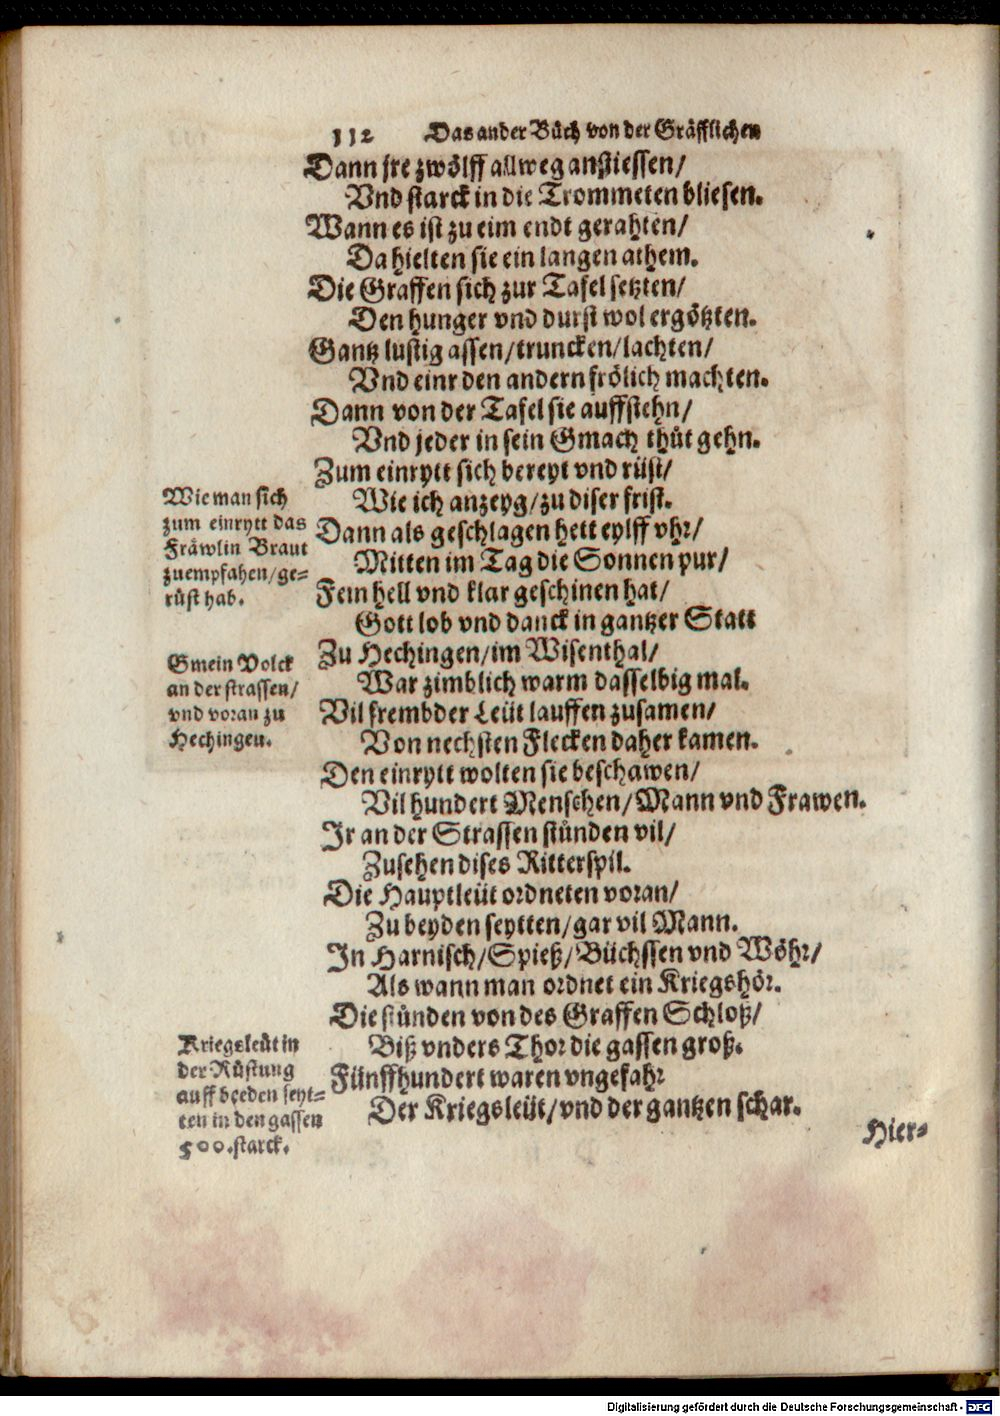 112 Das ander Bůch von der Gräfflichen
Dann jre zwölff allweg anstiessen/
Vnd starck in die Trommeten bliesen.
Wann es ist zu eim endt gerahten/
Da hielten sie ein langen athem.
Die Graffen sich zur Tafel setzten/
Den hunger vnd durst wol ergötzten.
Gantz lustig assen/truncken/lachten/
Vnd einr den andern frölich machten.
Dann von der Tafel sie auffstehn/
Vnd jeder in sein Gmach thůt gehn.
Zum einrytt sich bereyt vnd rüst/
Wie ich anzeyg/zu diser frist.
Wie man sich
zum einrytt das
Fräwlin Braut
zuempfahen/ge-
rüst hab.
Dann als geschlagen hett eylff vhr/
Mitten im Tag die Sonnen pur/
Fein hell vnd klar geschinen hat/
Gott lob vnd danck in gantzer Statt
Zu Hechingen/im Wisenthal/
War zimblich warm dasselbig mal.
Gmein Volck
an der strassen/
vnd voran zu
Hechingen.
Vil frembder Leüt lauffen zusamen/
Von nechsten Flecken daher kamen.
Den einrytt wolten sie beschawen/
Vil hundert Menschen/Mann vnd Frawen.
Ir an der Strassen stůnden vil/
Zusehen dises Ritterspil.
Die Hauptleüt ordneten voran/
Zu beyden seytten/gar vil Mann.
In Harnisch/Spieß/Büchssen vnd Wöhr/
Als wann man ordnet ein Kriegshör.
Die stůnden von des Graffen Schloß/
Biß vnders Thor die gassen groß.
Kriegsleüt in
der Rüstung
auff beeden seyt-
ten in den gassen
500.starck.
Fünffhundert waren vngefahr
Der Kriegsleüt/vnd der gantzen schar.
Hier-
Digitalisierung gefördert durch die Deutsche Forschungsgemeinschaft - DFG